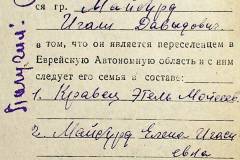 ся гр. Майдурд
Игали Давыдович
в том, что он является переселенцем в
Еврейскую Автономную область и с ним
следует его семья в составе:
1. Кравец Этель Мойсеев
2. Майдурд Елена Игали
евна